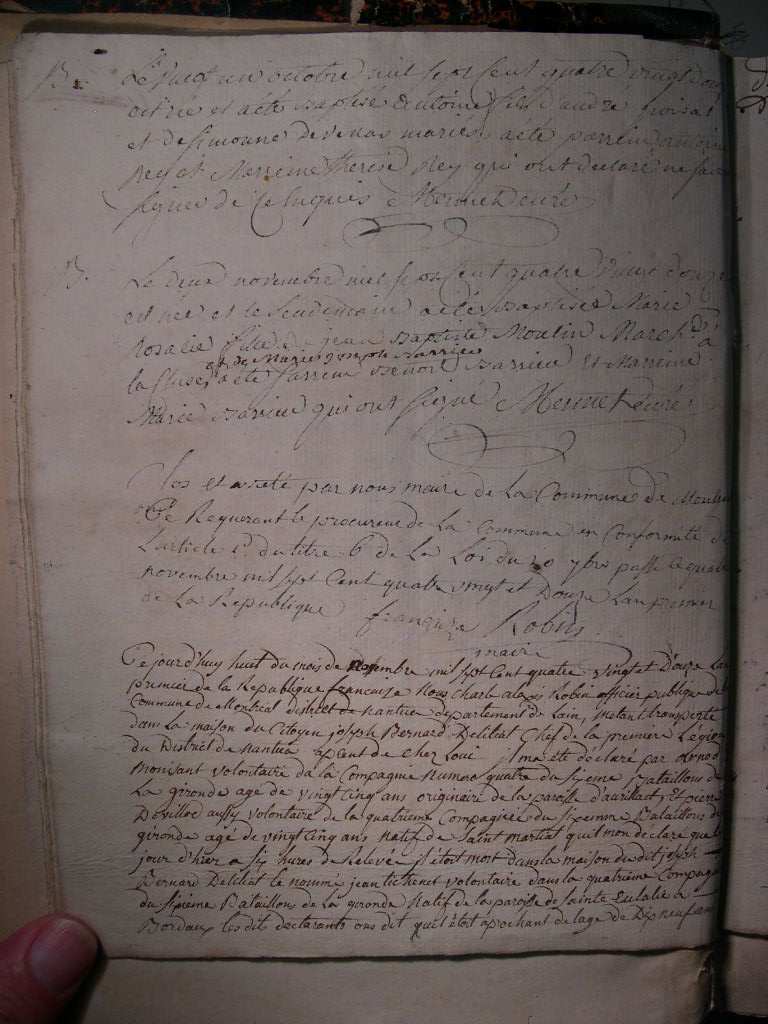 B. Le vingt un octobre mil sept cent quatre vingt
est né et a été Baptisé Antoine fils d'andré
et de simonne mariés a été parrein antoine
Rey et Marreine therese Rey qui ont declaré ne savoir
signer de ce enquis Mermet curé
B. Le deux novembre mil sept cent quatre vingt douze
est née et le lendemain a été Baptisée Marie
Rosalie fille de jean Baptiste Moulin March.d à
et de Marie josephe Barrieu
la Cluse, a été parrein Benoit Barrieu et Marreine
Marie Barrieu qui ont signé Mermet curé
Clos et areté par nous maire de la Commune de
Ce Requerant le procureur de la commune en Conformité de
L'article 1er du titre 6 de la Loi du 20 7bre passé le quatre
novembre mil sept Cent quatre vingt et Douze Lan premier
de La Republique françoise Robin
maire
Cejourd'huy huit du mois de novembre mil sept Cent quatre vingt et Douze Lan
premier de la Republique francoise Nous Charle alexis Robin officier publique de la
Commune de Montreal district de nantua departement de Lain, metant transporté
dans la maison du Citoyen joseph Bernard Deliliat Chef de la premiere Légion
du District de nantua jl ma été déclaré par
volontaire da la Compagnie numero quatre du sixieme Bataillons de
La gironde age de vingt cinq ans originaire de la paroisse d'aurillact, Et pierre
aussy volontaire de la quatrieme Compagnies du sixieme Bataillons de
gironde agé de vingt cinq ans natif de Saint martial qui mon declare que le
jour d'hier a six hures de Relevé jl étoit mort dans la maison dudit joseph
Bernard Deliliat le nommé jean volontaire dans la quatrieme Compagnie
du sixieme Bataillon de La gironde natif de la paroisse de Sainte Eulalie a
Bordaux les dit declarants ons dit quil étoit aprochant de lage de Dix neuf ans